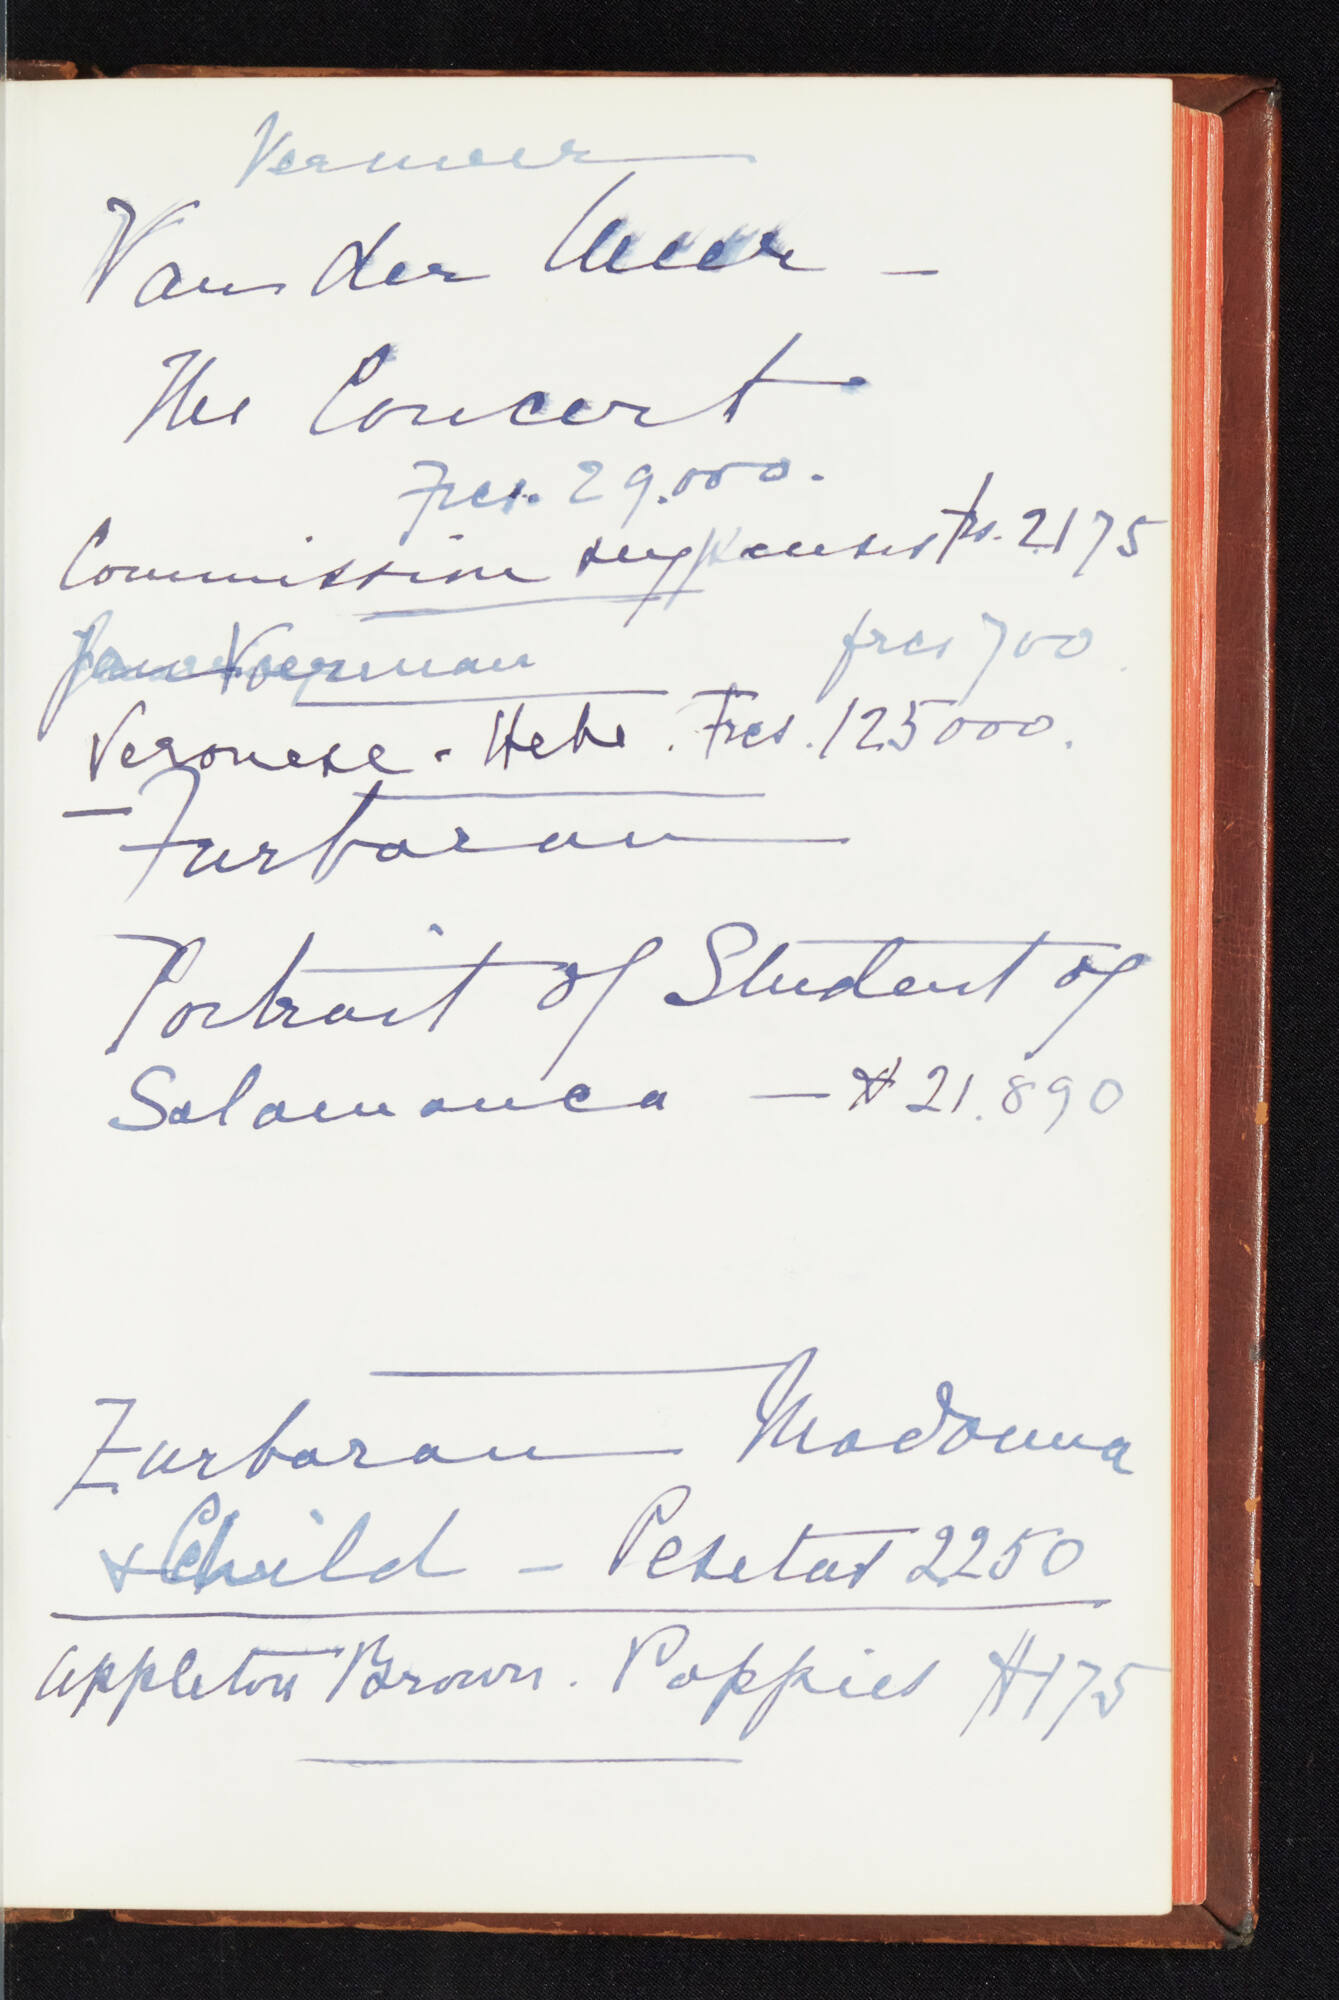 Vermeer
Van der Meer —
The Concert
Frcs. 29.000.
Commission & expenses frs. 2175
Jan Voerman frcs 700
Veronese - Hebe. Frcs. 125000.
Zurbaran
Portrait of Student of
Salamanca — $ 21.890
Zurbaran Madonna
& Child — Pesetas 2250
Appleton Brown. Poppies $175